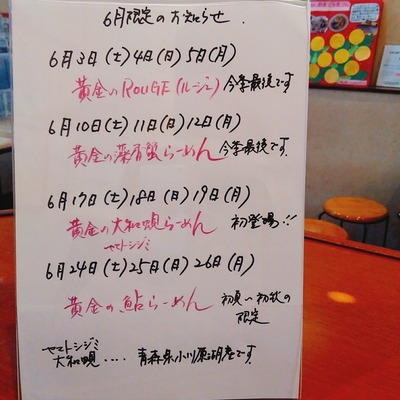 6月限定のお知らせ.
6月3日(土)4日(日)5日(月)
黄金のROUGE(ルージュ)今季最後です
6月10日(土)11日(日)12日(月)
黄金の藻屑蟹らーめん 今季最後です.
6月17日(土)18日(日)19日(月)
黄金の大和蜆らーめん 初登場!!
ヤマトシジミ
6月24日(土)25日(日)26日(月)
黄金の鮎らーめん 初夏〜初秋の
限定
ヤマトシジミ
大和蜆.... 青森県小川原湖産です.